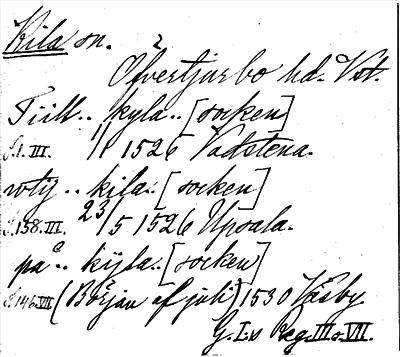 Kila sn.
Öfvertjurbo hd. Vst.
Tiill.. kyla.. [socken]
S.1.III. 1/1 1526 Vadstena.
wtij.. kila.. [socken]
S.138.III. 23/5 1526 Upsala.
på.. kijla.. [socken]
S.146.VII (Början af juli) 1530 Väsby
G. I.s Reg. III o. VII.